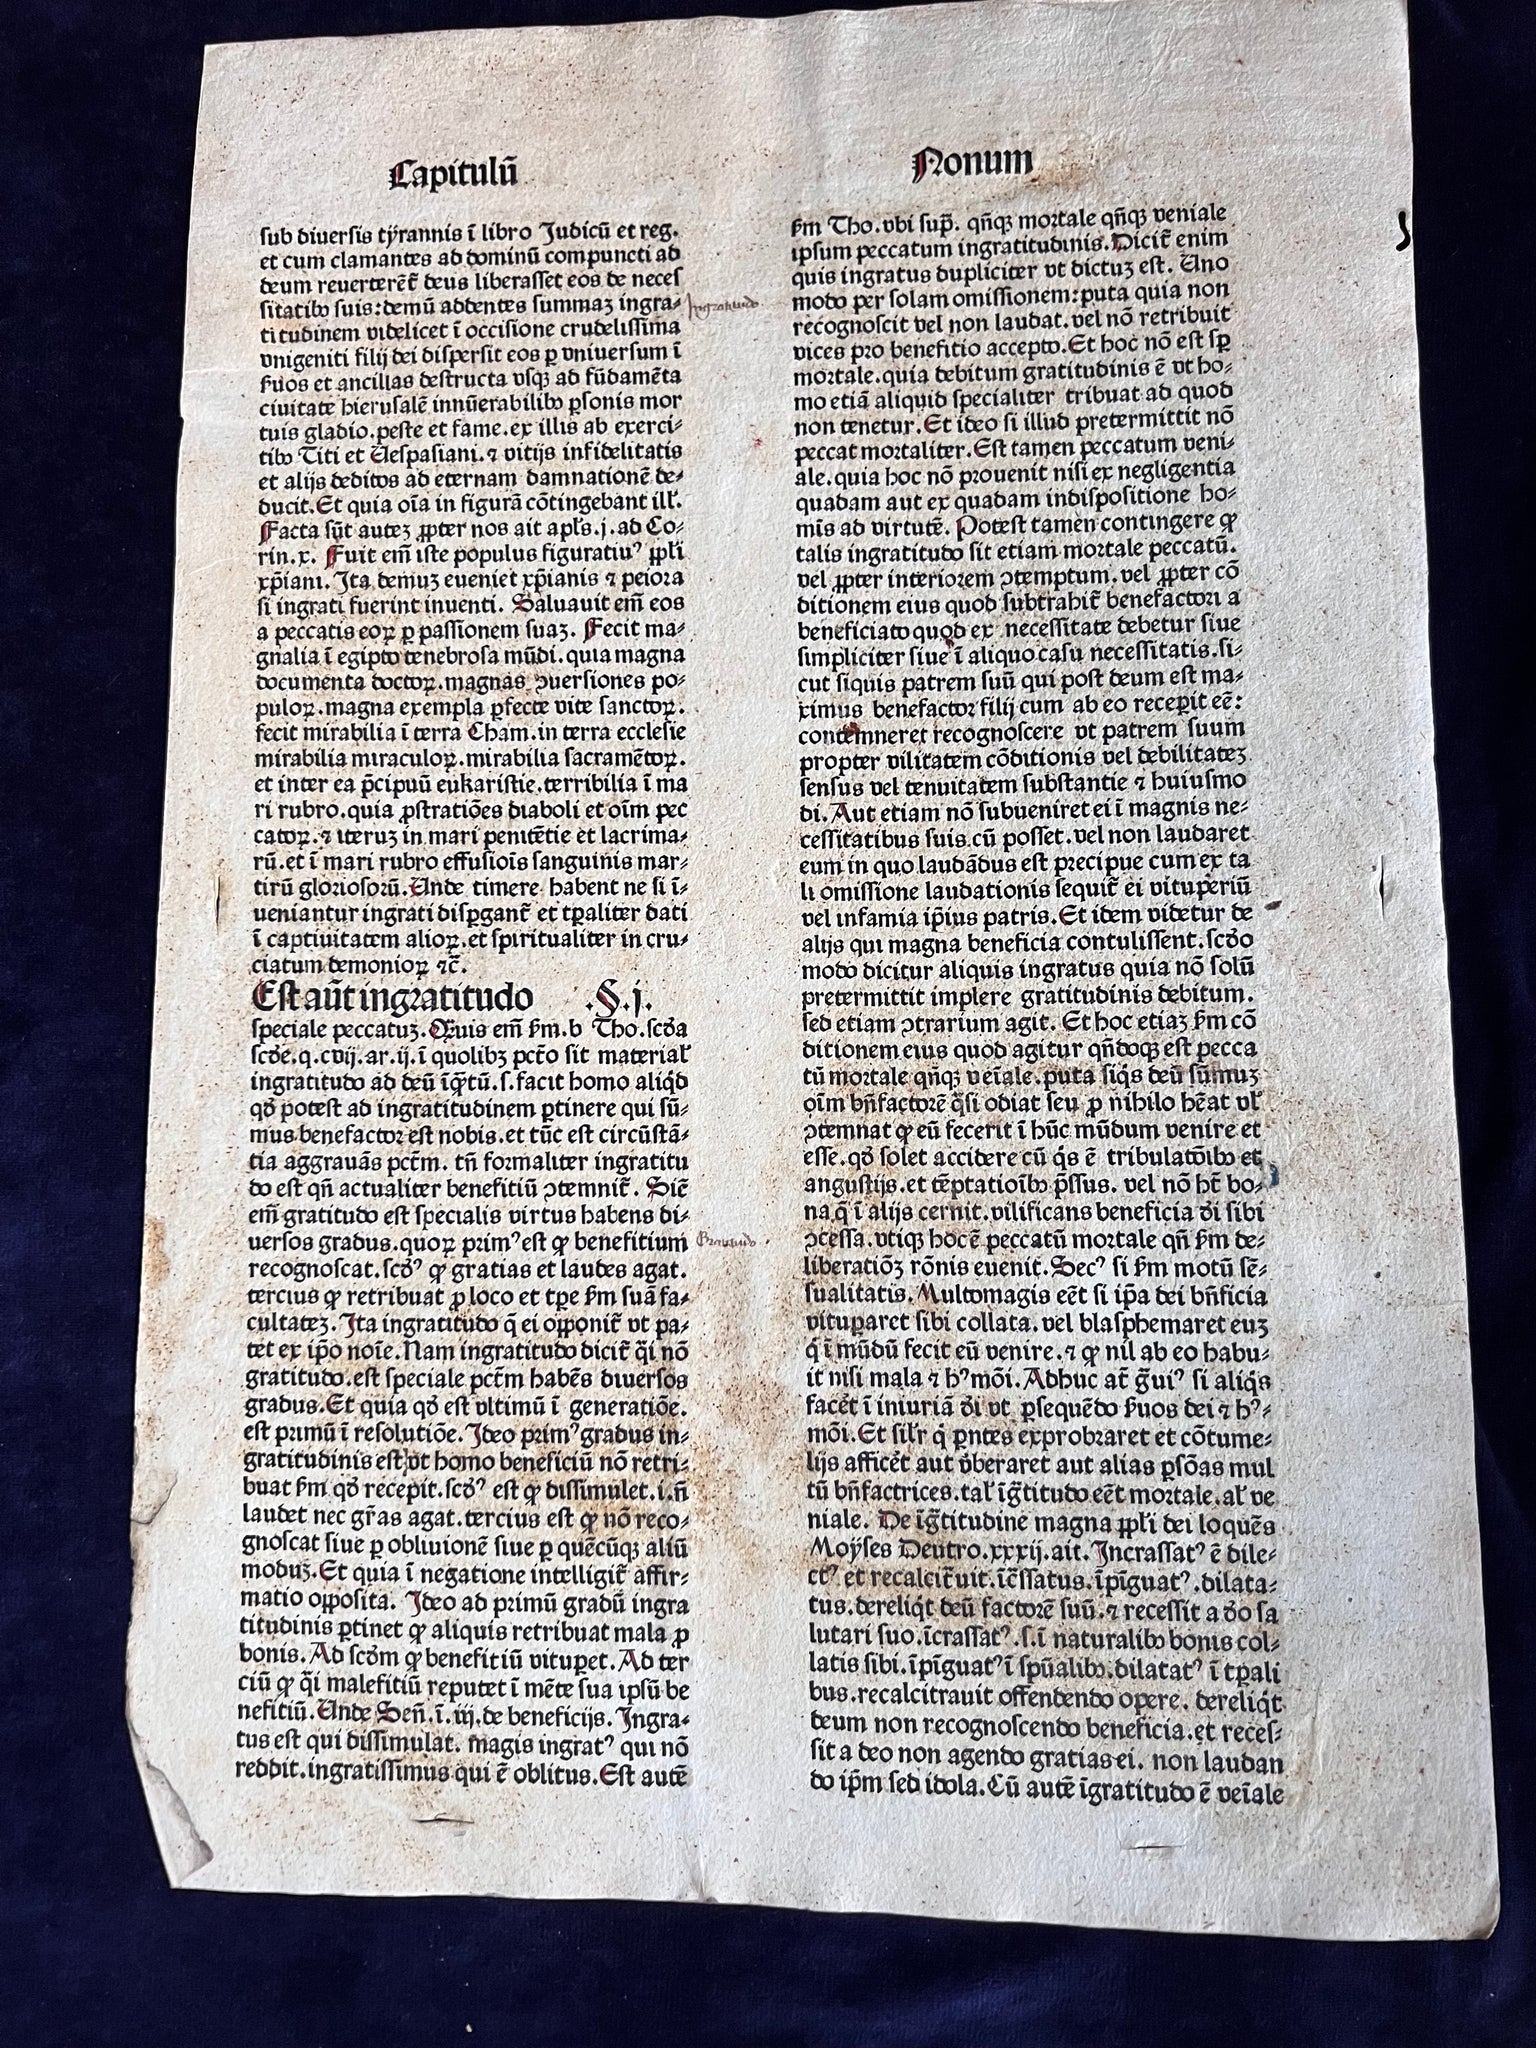 Capitulū
Nonum
sub diuersis tÿrannis ī libro Judicū et reg.
et cum clamantes ad dominū compuncti ad
deum reuerterēt̄ deus liberasset eos de neces
sitatibꝰ suis:demū addentes summaꝫ ingra⸗
titudinem videlicet ī occisione crudelissima
vnigeniti filij dei dispersit eos ꝑ vniuersum ī
ẜuos et ancillas destructa vsqꝫ ad fūdamēta
ciuitate hierusalē innūerabilibꝰ ꝑsonis mor
tuis gladio.peste et fame.ex illis ab exerci⸗
tibꝰ Titi et Uespasiani.⁊ vitijs infidelitatis
et alijs deditos ad eternam damnationē de⸗
ducit.Et quia oīa in figurā cōtingebant ill̓.
Facta sūt auteꝫ ꝓpter nos ait apl̓s.j.ad Co⸗
rin.x. Fuit em̄ iste populus figuratiuꝰ ꝓpl̓i
xp̄iani. Ita demuꝫ eueniet xp̄ianis ⁊ peiora
si ingrati fuerint inuenti. Saluauit em̄ eos
a peccatis eoꝝ ꝑ passionem suaꝫ. Fecit ma⸗
gnalia ī egipto tenebrosa mūdi.quia magna
documenta doctoꝝ.magnas ↄuersiones po⸗
puloꝝ.magna exempla ꝑfecte vite sanctoꝝ.
fecit mirabilia ī terra Cham.in terra ecclesie
mirabilia miraculoꝝ.mirabilia sacramētoꝝ.
et inter ea p̄cipuū eukaristie.terribilia ī ma
ri rubro.quia ꝓstratiōes diaboli et oīm pec
catoꝝ.⁊ iteruꝫ in mari penitētie et lacrima⸗
rū.et ī mari rubro effusiōis sanguinis mar⸗
tirū gloriosorū.Unde timere habent ne si ī⸗
ueniantur ingrati disꝑgant̄ et tꝑaliter dati
ī captiuitatem alioꝝ.et spiritualiter in cru⸗
ciatum demonioꝝ ⁊c̄.
Est aūt ingratitudo .§.j.
speciale peccatuꝫ.Quis em̄ ẜm.b Tho.scd̓a
scd̓e.q.cvij.ar.ij.ī quolibꝫ pctō sit material̓
ingratitudo ad deū īq̄tū.s.facit homo aliqd̓
qd̓ potest ad ingratitudinem ꝑtinere qui sū⸗
mus benefactor est nobis.et tūc est circūstā⸗
tia aggrauās pctm̄. tn̄ formaliter ingratitu
do est qn̄ actualiter benefitiū ↄtemnit̄. Siē
em̄ gratitudo est specialis virtus habens di⸗
uersos gradus.quoꝝ primꝰ est ꝙ benefitium
recognoscat.scd̓ꝰ ꝙ gratias et laudes agat.
tercius ꝙ retribuat ꝓ loco et tꝑe ẜm suā fa⸗
cultateꝫ. Ita ingratitudo q̄ ei oꝓponit̄ vt pa⸗
tet ex ip̄o noīe.Nam ingratitudo dicit̄ q̄i nō
gratitudo.est speciale pctm̄ habēs diuersos
gradus.Et quia qd̓ est vltimū ī generatiōe.
est primū ī resolutiōe. Ideo primꝰ gradus in⸗
gratitudinis est vt homo beneficiū nō retri⸗
buat ẜm qd̓ recepit.scd̓ꝰ est ꝙ dissimulet.i.n̄
laudet nec gr̄as agat.tercius est ꝙ nō reco⸗
gnoscat siue ꝑ obliuionē siue ꝑ quēcūqꝫ aliū
moduꝫ.Et quia ī negatione intelligit̄ affir⸗
matio oꝓposita. Ideo ad primū gradū ingra
titudinis ꝑtinet ꝙ aliquis retribuat mala ꝓ
bonis.Ad scd̓m ꝙ benefitiū vituꝑet.Ad ter
ciū ꝙ q̄i malefitiū reputet ī mēte sua ipsū be
nefitiū.Unde Señ.ī.iij.de beneficijs.Ingra⸗
tus est qui dissimulat. magis ingratꝰ qui nō
reddit.ingratissimus qui ē oblitus.Est autē
Ingratitudo
Gratitudo
ẜm Tho.vbi sup̄. qn̄qꝫ mortale qn̄qꝫ veniale
ipsum peccatum ingratitudinis.Dicit̄ enim
quis ingratus dupliciter vt dictuꝫ est. Uno
modo per solam omissionem:puta quia non
recognoscit vel non laudat.vel nō retribuit
vices pro benefitio accepto.Et hoc nō est sꝑ
mortale.quia debitum gratitudinis ē vt ho⸗
mo etiā aliquid specialiter tribuat ad quod
non tenetur.Et ideo si illud pretermittit nō
peccat mortaliter.Est tamen peccatum veni⸗
ale.quia hoc nō prouenit nisi ex negligentia
quadam aut ex quadam indispositione ho⸗
mīs ad virtutē. Potest tamen contingere ꝙ
talis ingratitudo sit etiam mortale peccatū.
vel ꝓpter interiorem ↄtemptum.vel ꝓpter cō
ditionem eius quod subtrahit̄ benefactori a
beneficiato quod ex necessitate debetur siue
simpliciter siue ī aliquo casu necessitatis.si⸗
cut siquis patrem suū qui post deum est ma⸗
ximus benefactor filij cum ab eo recepit eē:
contemneret recognoscere vt patrem suum
propter vilitatem cōditionis vel debilitateꝫ
sensus vel tenuitatem substantie ⁊ huiusmo
di.Aut etiam nō subueniret ei ī magnis ne⸗
cessitatibus suis.cū posset.vel non laudaret
eum in quo laudādus est precipue cum ex ta
li omissione laudationis sequit̄ ei vituperiū
vel infamia ip̄ius patris.Et idem videtur de
alijs qui magna beneficia contulissent.scd̓o
modo dicitur aliquis ingratus quia nō solū
pretermittit implere gratitudinis debitum.
sed etiam ↄtrarium agit. Et hoc etiaꝫ ẜm cō
ditionem eius quod agitur qn̄doqꝫ est pecca
tū mortale qn̄qꝫ veīale.puta siq̓s deū sūmuꝫ
oīm bn̄factorē q̄si odiat seu ꝓ nihilo hēat vl̓
ↄtemnat ꝙ eū fecerit ī hūc mūdum venire et
esse.qd̓ solet accidere cū q̓s ē tribulatōībꝰ et
angustijs.et tēptatioībꝰ p̄ssus. vel nō hꝫ bo⸗
na.q̄ ī alijs cernit.vilificans beneficia d̓i sibi
ↄcessa.vtiqꝫ hoc ē peccatū mortale qn̄ ẜm de⸗
liberatiōꝫ rōnis euenit.Secꝰ si ẜm motū sē⸗
sualitatis. Multomagis eēt si ip̄a dei bn̄ficia
vituꝑaret sibi collata.vel blasphemaret euꝫ
q̓ ī mūdū fecit eū venire.⁊ ꝙ nil ab eo habu⸗
it nisi mala ⁊ hꝰmōi.Adhuc at̄ g̈uiꝰ si aliq̓s
facēt ī iniuriā d̓i vt ꝑsequēdo ẜuos dei ⁊ hꝰ⸗
mōi.Et sil̓r q̓ ꝑntes exprobraret et cōtume⸗
lijs afficēt aut v̓beraret aut alias ꝑsōas mul
tū bn̄factrices.tal̓ īg̈titudo eēt mortale.al̓ ve
niale. De īg̈titudine magna ꝓpl̓i dei loquēs
Moÿses Deutro.xxxij.ait. Incrassatꝰ ē dile⸗
ctꝰ et recalcit̄uit.īc̄ssatus.īpīguatꝰ.dilata⸗
tus.dereliq̓t deū factorē suū.⁊ recessit a d̓o sa
lutari suo.īcrassatꝰ.s.ī naturalibꝰ bonis col⸗
latis sibi.īpīguatꝰ ī spūalibꝰ.dilatatꝰ ī tꝑali
bus.recalcitrauit offendendo opere. dereliq̓t
deum non recognoscendo beneficia.et reces⸗
sit a deo non agendo gratias ei. non laudan
do ip̄m sed idola.Cū autē īgratitudo ē veīale